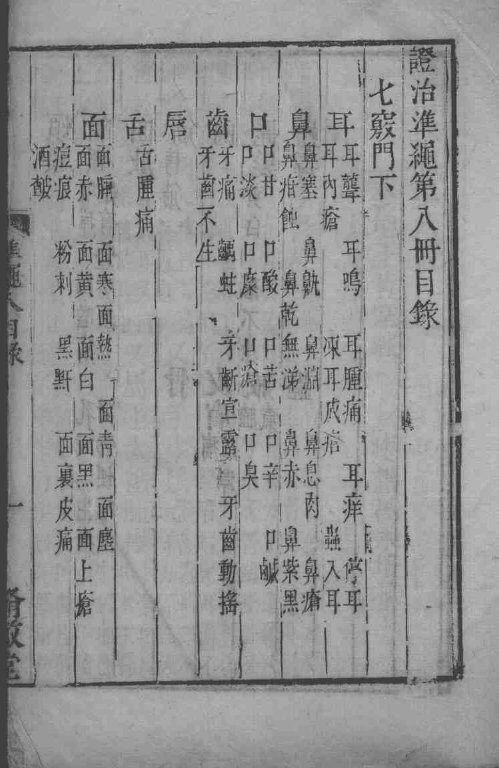 證治準繩第八冊目錄
七竅門下
耳 耳聾 耳鳴 耳腫痛 耳痒 停耳
耳內瘡 凍耳成瘡 蟲入耳
鼻 鼻塞 鼻鼽 鼻淵 鼻息肉 鼻瘡
鼻疳蝕 鼻乾無涕 鼻赤 鼻紫黑
口 口甘 口酸 口苦 口辛 口鹹
口淡 口糜 口瘡 口臭
齒 牙痛 齲蛀 牙齗宣露 牙齒動搖
牙齒不生
唇
舌 舌腫痛
面 面腫 面寒 面熱 面青 面塵
面赤 面黃 面白 面黑 面上瘡
痘痕 粉刺 黑䵟 面裏皮痛
酒皶
準繩八目錄 一